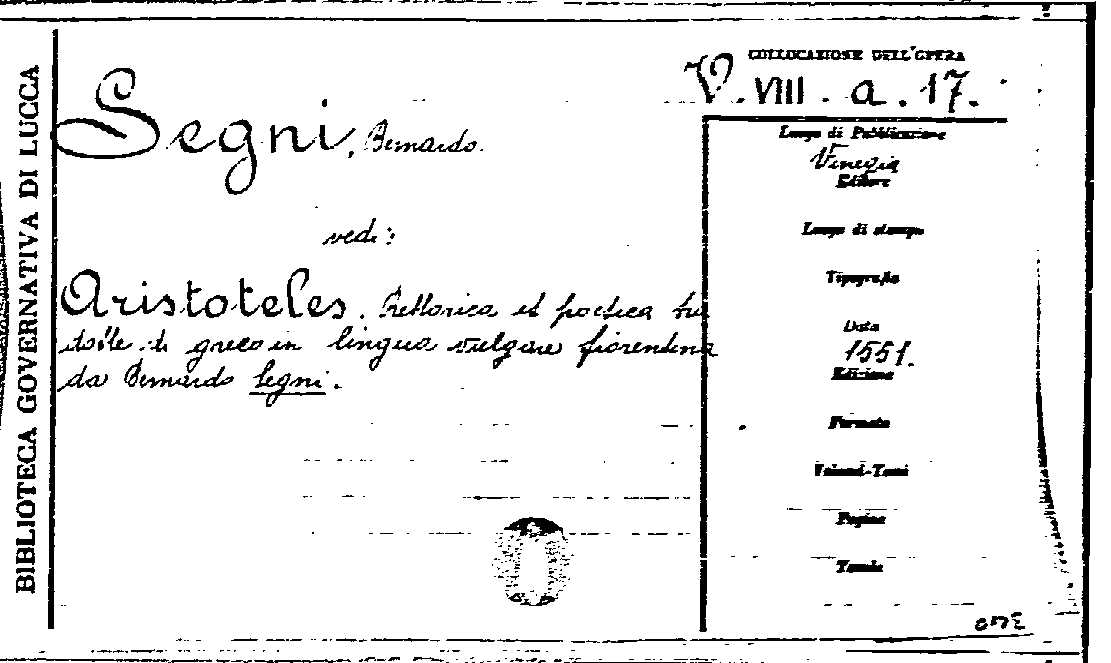 BIBLIOTECA GOVERNATIVA DI LUCCA
COLLOCAZIONE DELL'OPERA
V. VIII. a. 17.
Segni, Bernardo.
vedi:
Aristoteles. Rettorica et poetica tra
dotte di greco in lingua vulgare fiorentina
da Bernardo Segni.
Luogo di Pubblicazione
Venezia
Editore
Luogo di stampa
Tipografia
Data
1551.
Edizione
Formato
Volumi-Tomi
Pagine
Tavole